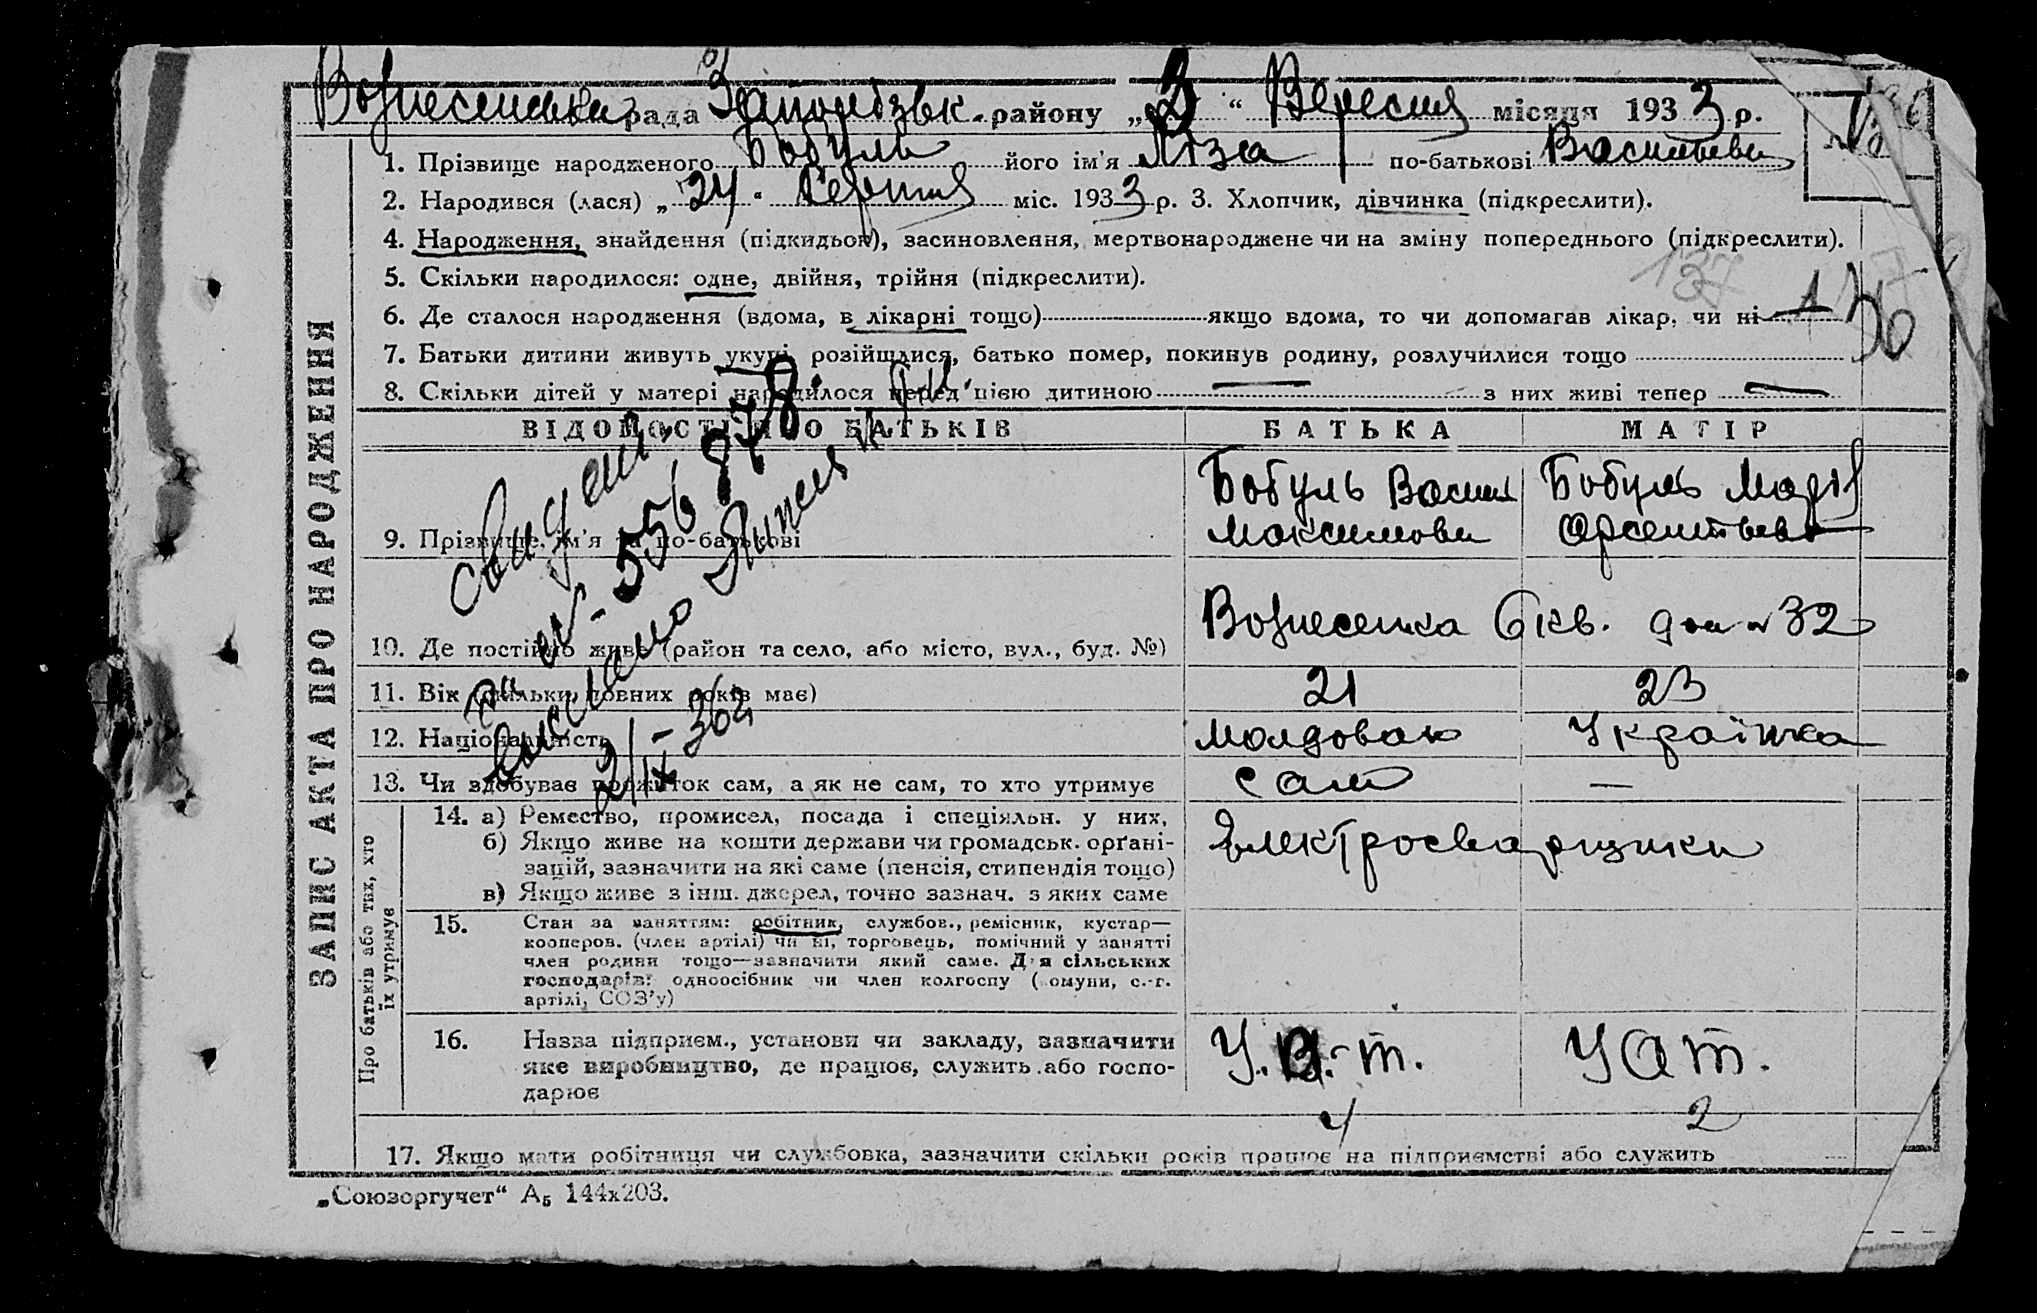 Вознесенська рада Запорізьк. району „3“ Вересня місяця 1933 р.
1. Прізвище народженого Бобуль його ім'я Ліза по-батькові Васильевн
2. Народився (лася) „24“ Серпня міс. 1933 р. 3. Хлопчик, дівчинка (підкреслити).
4. Народження, знайдення (підкидьок), засиновлення, мертвонароджене чи на зміну попереднього (підкреслити).
137
5. Скільки народилося: одне, двійня, трійня (підкреслити).
6. Де сталося народження (вдома, в лікарні тощо) якщо вдома, то чи допомагав лікар, чи ні
7. Батьки дитини живуть укупі, розійшлися, батько помер, покинув родину, розлучилися тощо
8. Скільки дітей у матері народилося перед цією дитиною — з них живі тепер —
ВІДОМОСТІ ПРО БАТЬКІВ БАТЬКА МАТІР
9. Прізвище, ім'я та по-батькові
Бобуль Васил
Максимови
Бобуль Марія
Арсентьева
10. Де постійно живе (район та село, або місто, вул., буд. №) Вознесенка 6 кв. дом № 32
11. Вік (скільки повних років має) 21 23
12. Національність молдован Українка
13. Чи здобуває прожиток сам, а як не сам, то хто утримує сам —
14. а) Ремество, промисел, посада і спеціяльн. у них,
б) Якщо живе на кошти держави чи громадськ. орґані-
зацій, зазначити на які саме (пенсія, стипендія тощо)
в) Якщо живе з інш. джерел, точно зазнач. з яких саме
Електросварщики
15. Стан за заняттям: робітник, службов., ремісник, кустар—
кооперов. (член артілі) чи ні, торговець, помічний у занятті
член родини тощо—зазначити який саме. Для сільських
господарів: одноосібник чи член колгоспу (комуни, с.-г.
артілі, СОЗ'у)
16. Назва підприєм., установи чи закладу, зазначити
яке виробництво, де працює, служить або госпо-
дарює
У.А.-т. УАТ.
4 2
17. Якщо мати робітниця чи службовка, зазначити скільки років працює на підприємстві або служить
ЗАПИС АКТА ПРО НАРОДЖЕННЯ
Про батьків або тих, хто
їх утримує
свидет.
556878
выслано
21/IX-36г
„Союзоргучет“ А5 144х203.